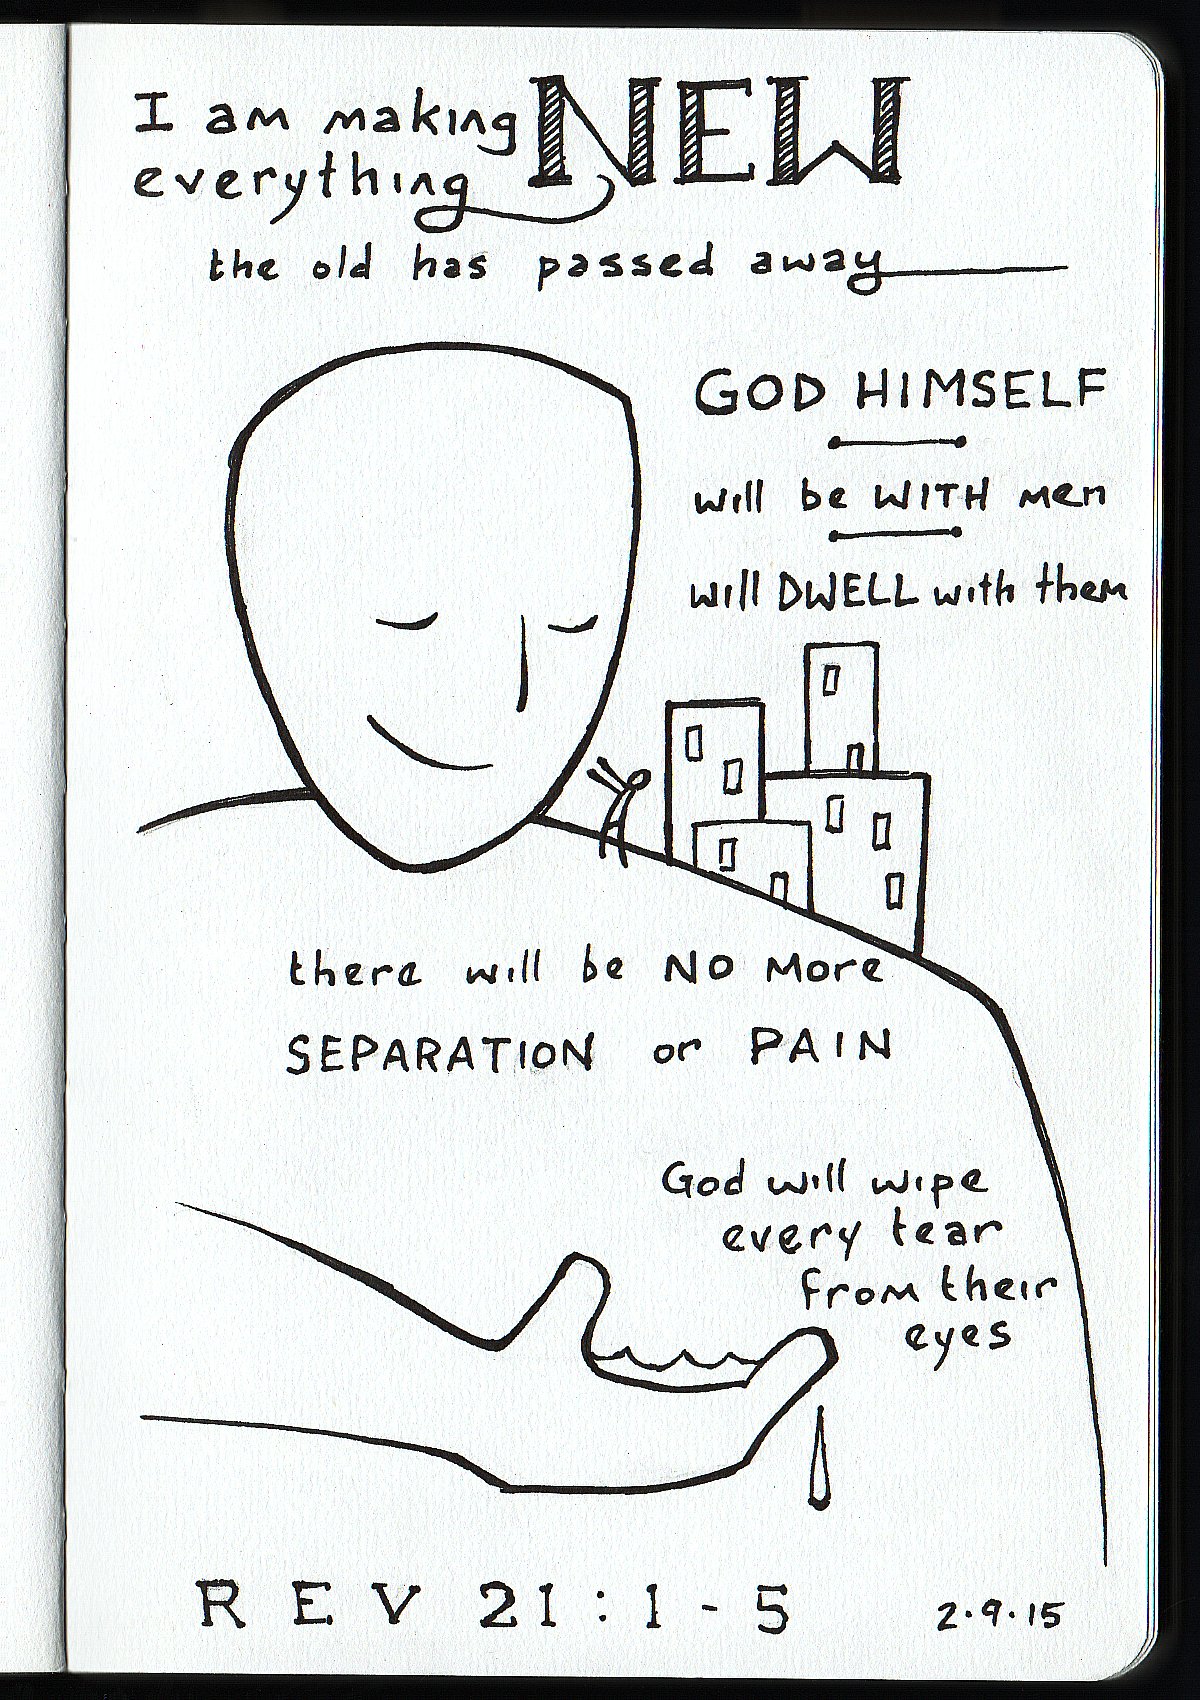 I am making NEW
everything
the old has passed away
GOD HIMSELF
will be WITH men
will DWELL with them
there will be NO More
SEPARATION or PAIN
God will wipe
every tear
from their
eyes
REV 21:1-5
2.9.15